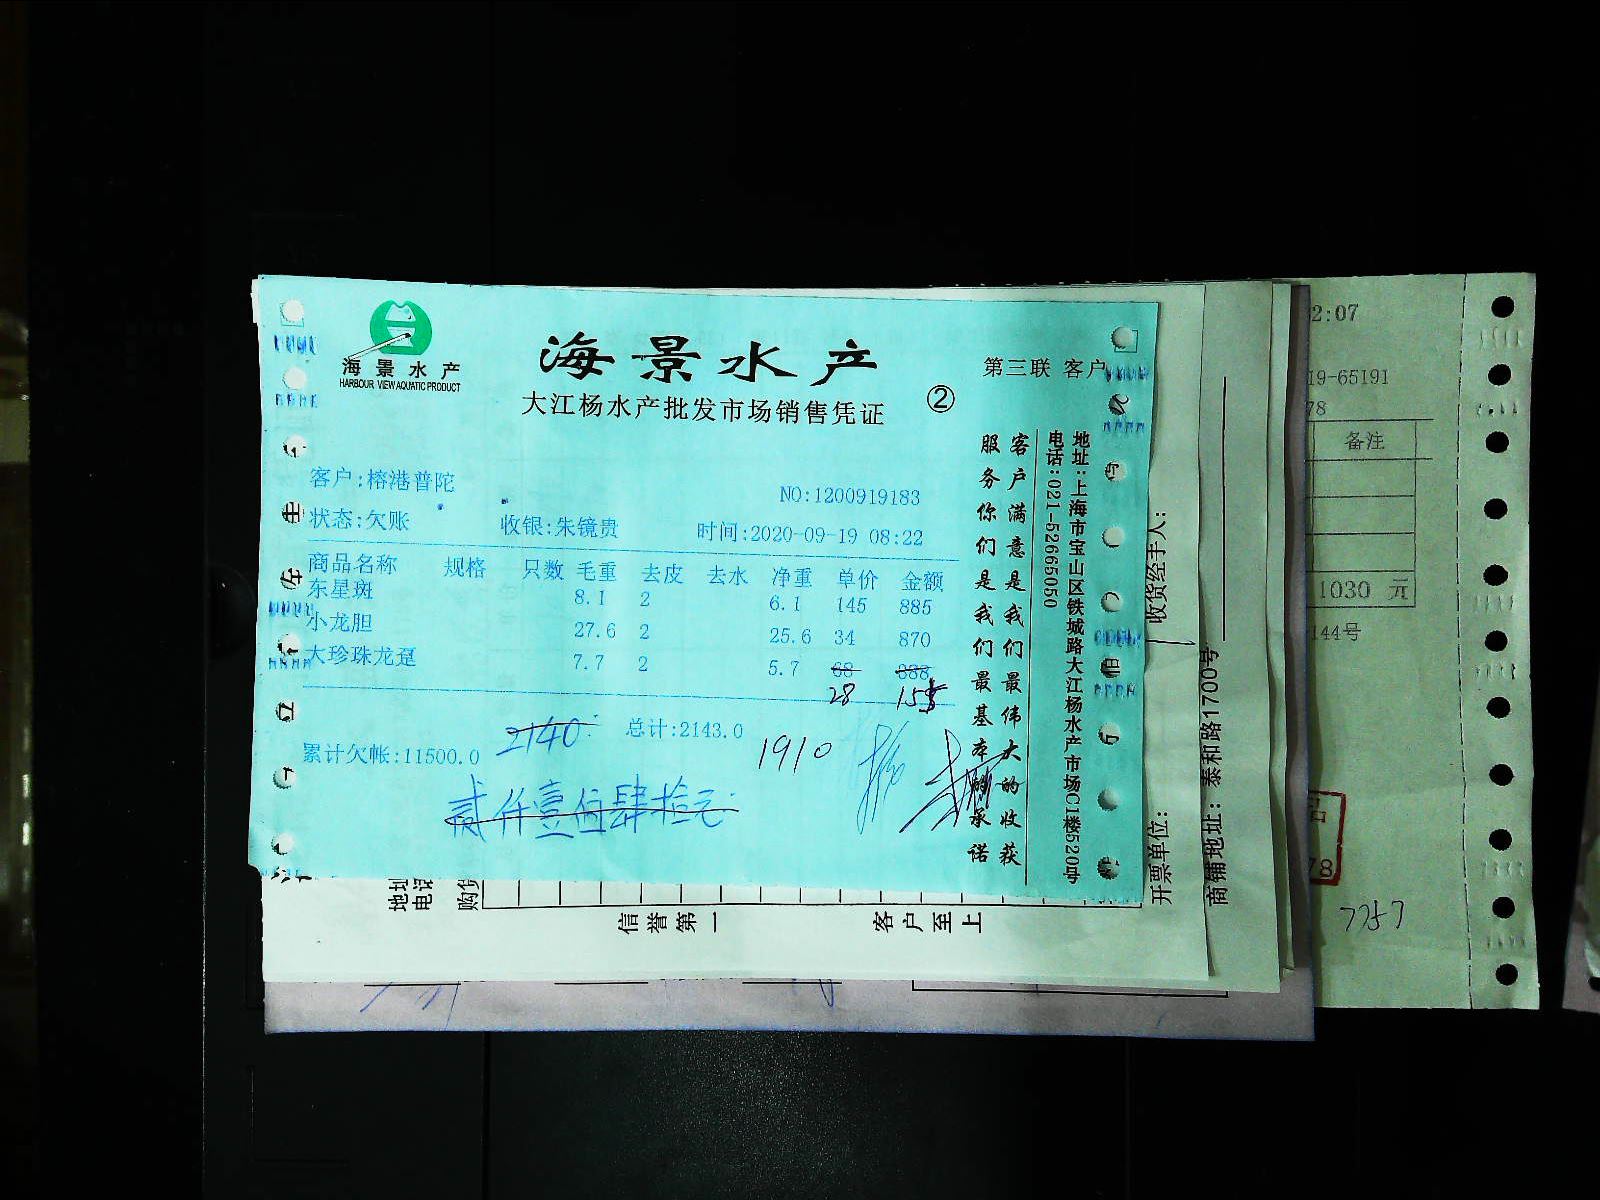 海景水产
HARBOUR VIEW AQUATIC PRODUCT
海景水产
大江杨水产批发市场销售凭证
②
第三联 客户
客户:榕港普陀
NO:1200919183
状态:欠账 收银:朱镜贵 时间:2020-09-19 08:22
商品名称 规格 只数 毛重 去皮 去水 净重 单价 金额
东星斑 8.1 2 6.1 145 885
小龙胆 27.6 2 25.6 34 870
大珍珠龙趸 7.7 2 5.7 68 388
28 155
总计:2143.0
累计欠帐:11500.0
2140
1910
贰仟壹佰肆拾元
客户满意是我们最伟大的收获
服务你们是我们最基本的承诺
地址:上海市宝山区铁城路大江杨水产市场C1楼520号
电话:021-52665050
收货经手人:
开票单位:
商铺地址:泰和路1700号
地址
电话
购货
信誉第一
客户至上
2:07
19-65191
78
备注
1030 元
144号
78
7257